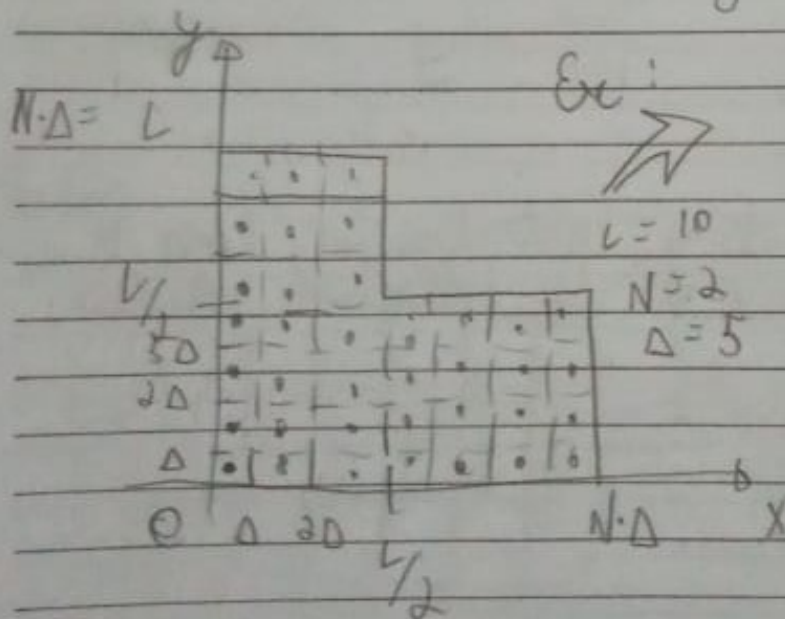 y
N·Δ = L
Ex:
L = 10
N = 2
Δ = 5
L/2
5Δ
2Δ
Δ
0 Δ 2Δ L/2 N·Δ X